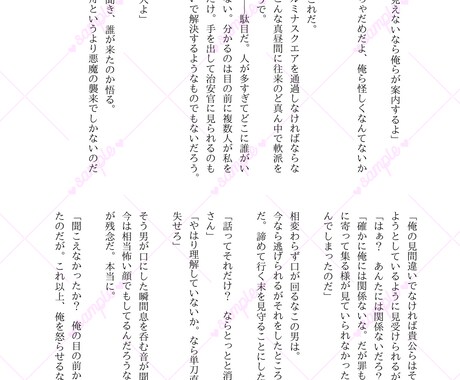 見えないなら俺らが案内するよ」
ちゃだめだよ、俺ら怪しくなんてないか
これだ。
ルミナスクエアを通過しなければならな
こんな真昼間に往来のど真ん中で軟派を
うで。
――駄目だ。人が多すぎてどこに誰がい
ない。分かるのは目の前に複数人が私を
だけ。手を出して治安官に見られるのも
いで解決するようなものでもないだろう。
人よ」
聞き、誰が来たのか悟る。
というより悪魔の襲来でしかないのだ
「俺の見間違いでなければ貴公らはそ
ようとしているように見受けられるが
「はぁ？　あんたには関係ないだろ？
「確かに俺には関係ないな。だが罪も
に寄って集る様が見ていられなかった
んでしまったのだ」
相変わらず口が回るなこの男は。
今なら逃げられるがそれをしたところ
だ。諦めて行く末を見守ることにした
「話ってそれだけ？　ならとっとと消
さん」
「やはり理解していないか。なら単刀直
失せろ」
そう男が口にした瞬間息を呑む音が聞
今は相当怖い顔でもしてるんだろうな
が残念だ。本当に。
「聞こえなかったか？　俺の目の前か
たのだが。これ以上、俺を怒らせるな
sample